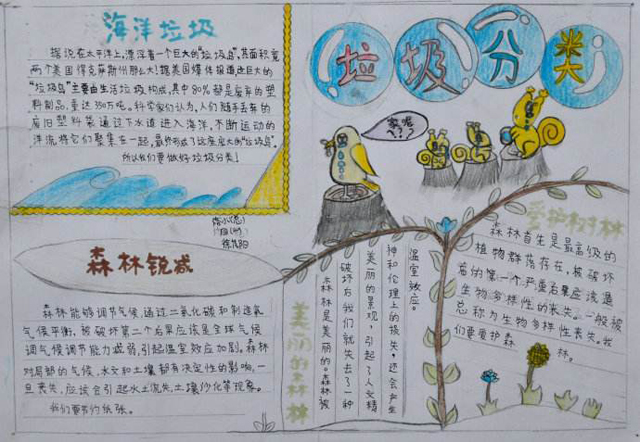 海洋垃圾
据说在太平洋上,漂浮着一个巨大的“垃圾岛”,其面积竟
两个美国得克萨斯州那么大!据美国媒体报道这巨大的
“垃圾岛”主要由生活垃圾构成,其中80%都是废弃的塑
料制品,重达350万吨。科学家们认为,人们随手丢弃的
废旧塑料袋通过下水道进入海洋,不断运动的
洋流将它们聚集在一起,最终形成了这座庞大的“垃圾岛”。
所以我们要做好垃圾分类!
垃圾分类
家呢
???
森林锐减
森林能够调节气候,通过二氧化碳和制造氧
气候平衡,被破坏第二个后果应该是全球气候
调气候调节能力减弱,引起温室效应加剧。森林
对局部的气候,水文和土壤都有决定性的影响,一
旦丧失,应该会引起水土流失,土壤沙化等现象。
我们要节约纸张。
美丽的森林
森林是美丽的。森林被
破坏后我们就失去了一种
美丽的景观,引起了人文精
神和伦理上的损失,还会产生
温室效应。
爱护树林
森林首先是最高级的
植物群落存在,被破坏
后的第一个严重后果应该造
生物多样性的丧失。一般被
总称为生物多样性丧失。我
们要爱护森林。